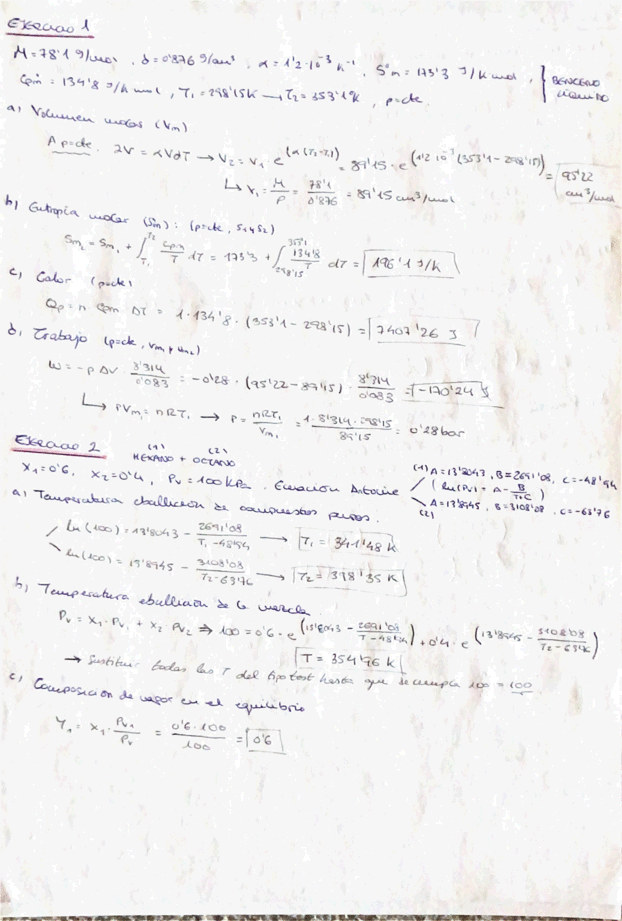 Ejercicio 1
M=78'1 g/mol, δ=0'876 g/cm³, α=1'2·10⁻³ K⁻¹, S°m=173'3 J/K mol, } BENCENO LÍQUIDO
Cpm=134'8 J/K mol, T₁=298'15K → T₂=353'1K, p=cte.
a) Volumen molar (Vm)
A p=cte. ∂V=αVdT → V₂=V₁ e^(α(T₂-T₁)) = 89'15·e^(1'2·10⁻³(353'1-298'15)) = 95'22 cm³/mol
↳ V₁ = M/ρ = 78'1/0'876 = 89'15 cm³/mol
b) Entropía molar (Sm): (p=cte, S₁ y S₂)
Sm₂ = Sm₁ + ∫_T₁^T₂ Cpm/T dT = 173'3 + ∫_298'15^353'1 134'8/T dT = 196'1 J/K
c) Calor (p=cte)
Qp = n Cpm ΔT = 1·134'8·(353'1-298'15) = 7407'26 J
d) Trabajo (p=cte, Vm₁ y Vm₂)
W=-p ΔV 8'314/0'083 = -0'28·(95'22-89'15)·8'314/0'083 = -170'24 J
↳ PVm₁=nRT₁ → P = nRT₁/Vm₁ = 1·8'314·298'15/89'15 = 0'28bar
Ejercicio 2
(1) (2)
HEXANO + OCTANO
X₁=0'6, X₂=0'4, Pv=100kPa. Ecuación Antoine (ln(Pv) = A - B/(T+C))
(1) A=13'8043, B=2691'08, C=-48'94
(2) A=13'8945, B=3108'08, C=-63'76
a) Temperatura ebullición de compuestos puros.
ln(100)=13'8043 - 2691'08/(T₁-48'94) → T₁=341'48 K
ln(100)=13'8945 - 3108'08/(T₂-63'76) → T₂=398'35 K
b) Temperatura ebullición de la mezcla
Pv = X₁·Pv₁ + X₂ Pv₂ ⇒ 100=0'6·e^(13'8043 - 2691'08/(T-48'94)) + 0'4·e^(13'8945 - 3108'08/(T₂-63'76))
T=354'96 K
→ Sustituir todas las T del tipo test hasta que se cumpla 100=100
c) Composición de vapor en el equilibrio
Y₁ = X₁·Pv₁/Pv = 0'6·100/100 = 0'6